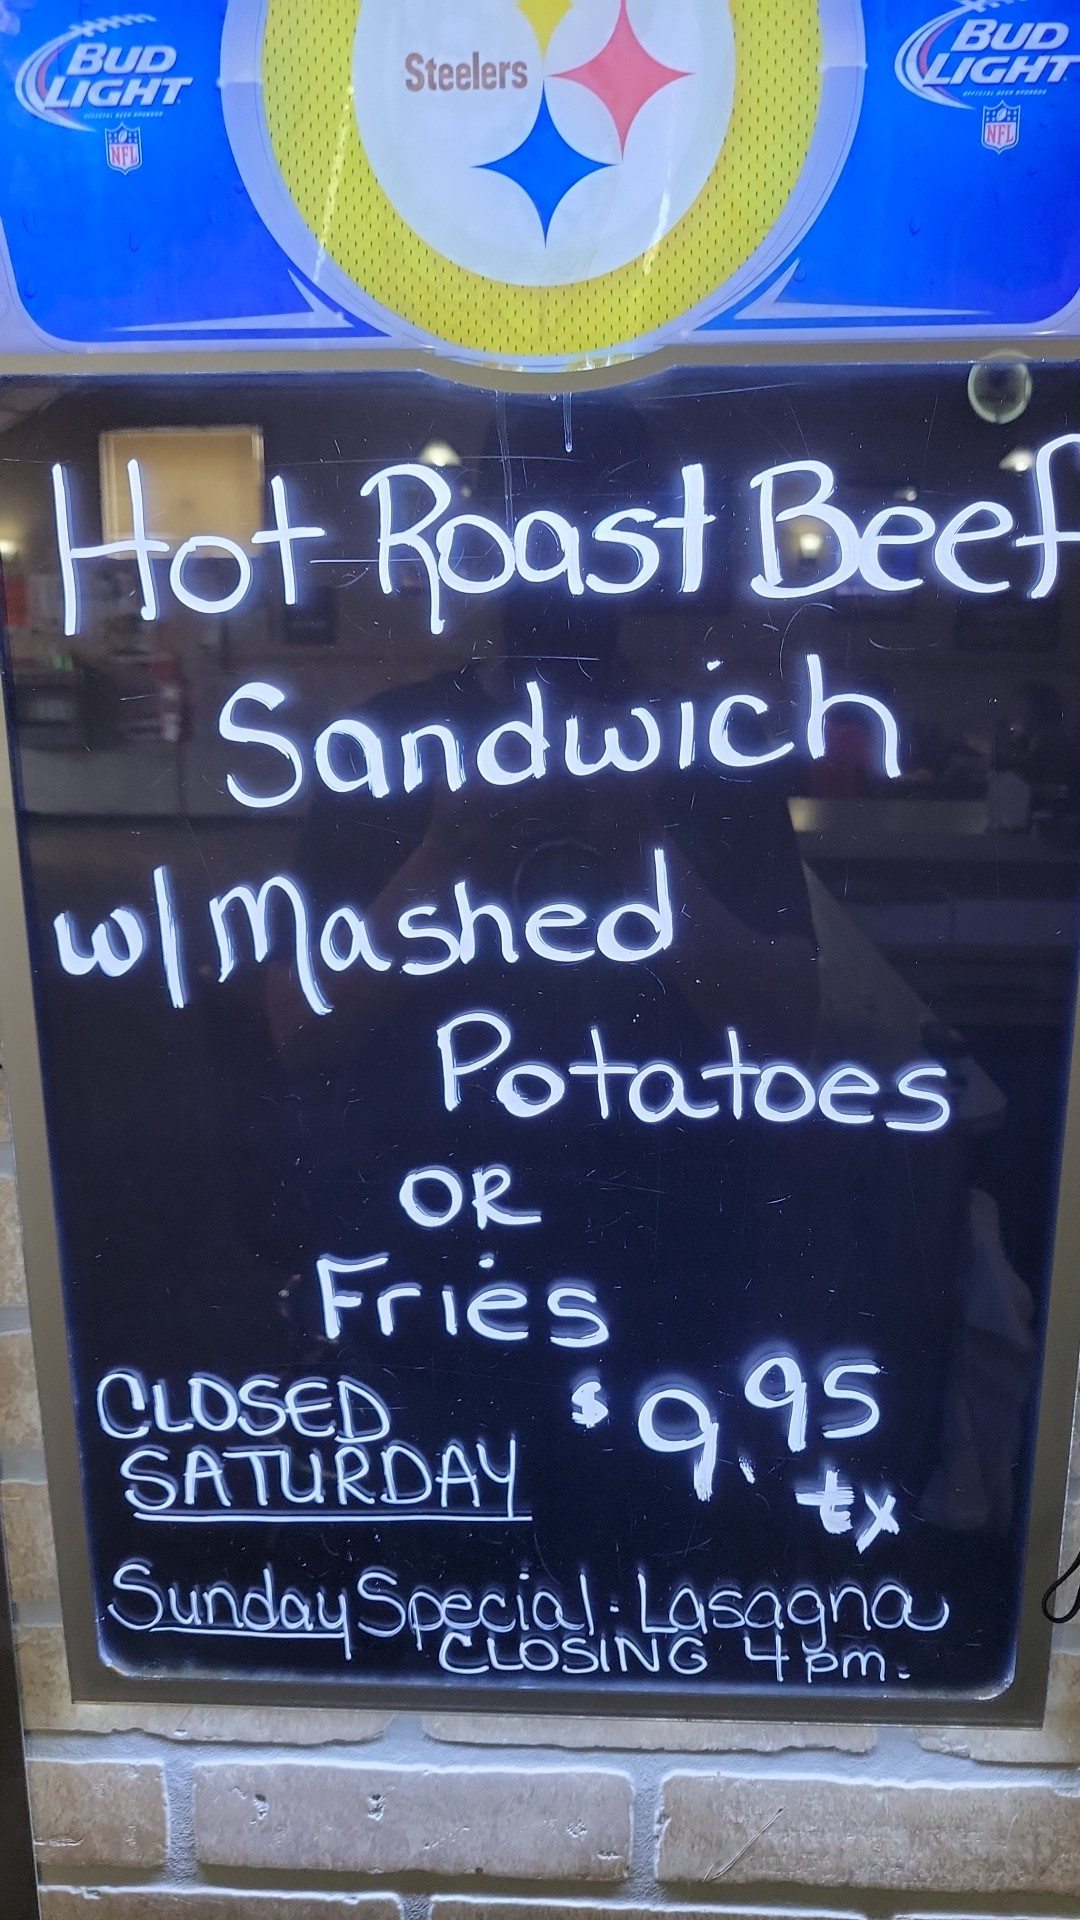 BUD LIGHT
OFFICIAL BEER SPONSOR
NFL
Steelers
BUD LIGHT
OFFICIAL BEER SPONSOR
NFL
Hot Roast Beef
Sandwich
w/ Mashed
Potatoes
OR
Fries
CLOSED
SATURDAY
$9.95
tx
Sunday Special: Lasagna
CLOSING 4pm.